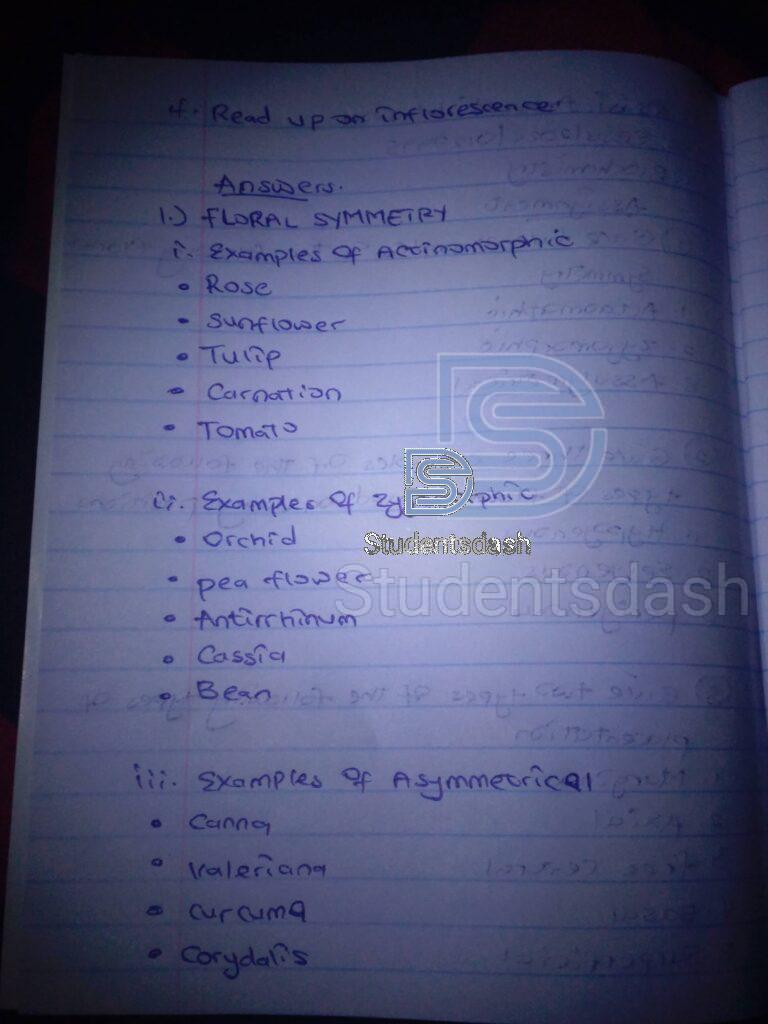 4. Read up on inflorescence.
Answers.
1.) FLORAL SYMMETRY
i. Examples of Actinomorphic
• Rose
• Sunflower
• Tulip
• Carnation
• Tomato
ii. Examples of
• Orchid
Studentsdash
• pea flower
Studentsdash
• Antirrhinum
• Cassia
• Bean
iii. Examples of Asymmetrical
• Canna
• Valeriana
• Curcuma
• Corydalis